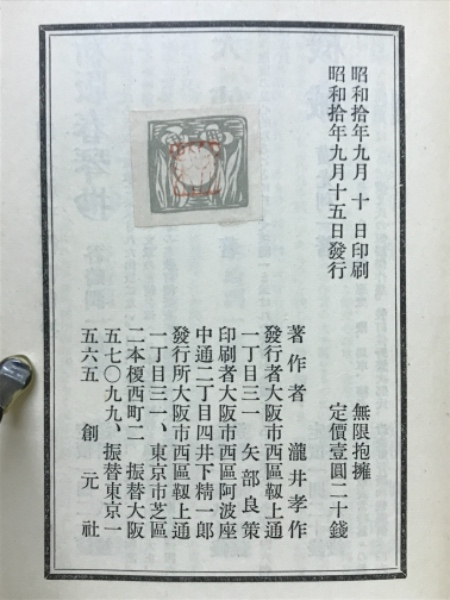 昭和拾年九月 十 日印刷
昭和拾年九月十五日發行
無限抱擁
定價壹圓二十錢
著作者 瀧井孝作
發行者大阪市西區靱上通
一丁目三一 矢部良策
印刷者大阪市西區阿波座
中通二丁目四井下精一郎
發行所大阪市西區靱上通
一丁目三一、東京市芝區
二本榎西町二 振替大阪
五七〇九九、振替東京一
五六五 創元社